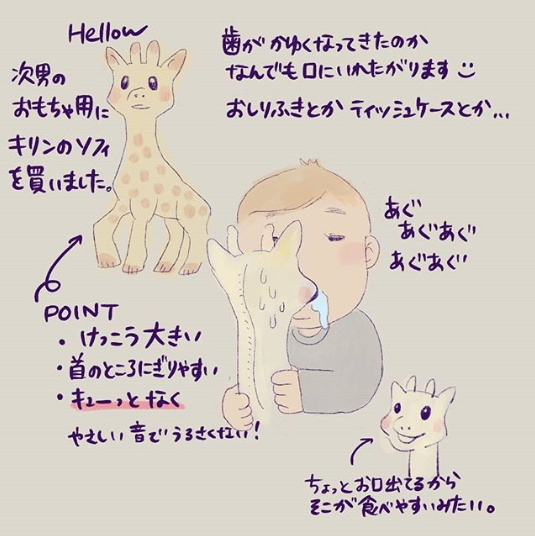 Hellow
次男の
おもちゃ用に
キリンのソフィ
を買いました。
歯が かゆくなってきたのか
なんでも口にいれたがります
おしりふきとか ティッシュケースとか...
あぐ
あぐあぐ
あぐあぐ
POINT
・ けっこう大きい
・首のところにぎりやすい
・キューっとなく
やさしい音でうるさくない!
ちょっとお口出てるから
そこが食べやすいみたい。